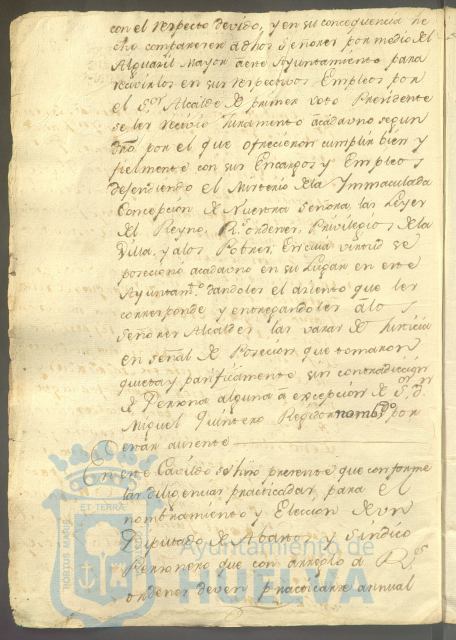 con el respecto devido, y en su consequencia he
cho comparecer a dhos Señores por medio del
Alguasil mayor de este Ayuntamiento para
recivirlos en sus respectivos Empleos por
el Sor Alcalde de primer voto Presidente
se les recivio Juramento a cada uno segun
dro. por el que ofrecieron cumplir bien y
fielmente con sus Encargos y Empleos
defendiendo el Misterio de la Immaculada
Concepción de Nuestra Señora, las Leyes
del Reyno, Rs ordenes, Privilegios de la
Villa, y a los Pobres, En cuia virtud se
posecionó a cada uno en su Lugar en este
Ayuntamto dandoles el asiento que les
corresponde y entregandoles a los
Señores Alcaldes las varas de Justicia
en señal de Posecion, que tomaron
quieta y pacificamente sin contradiccion
de Persona alguna a excepcion de
Miguel Quintero Regidor nombdo por
estar ausente
En este Cavildo se hizo presente que conforme
las diligencias practicadas para el
nombramiento y Eleccion de un
Diputado de Abastos y Sindico
Personero que con arreglo a Rs
ordenes deven practicarse annual
PORTUS MARIS
ET TERRAE
Ayuntamiento de
HUELVA